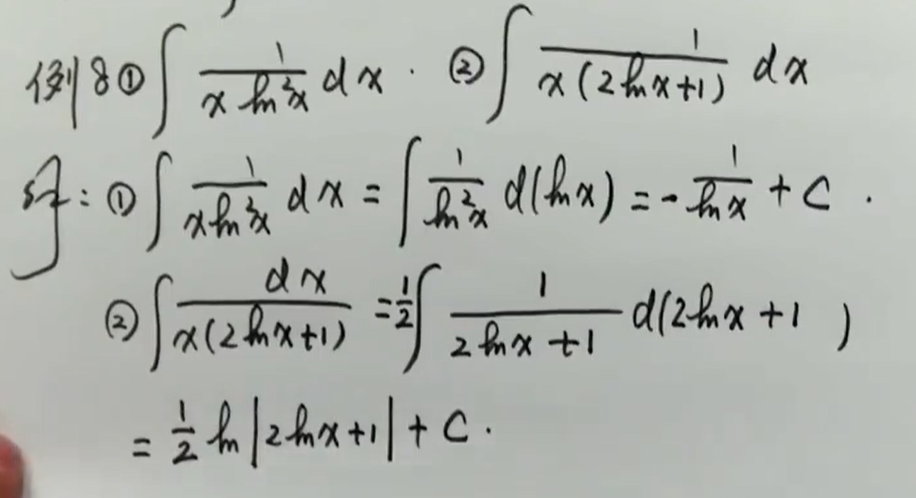 例8 ① ∫ 1/(x ln²x) dx . ② ∫ 1/(x(2lnx+1)) dx
解: ① ∫ 1/(x ln²x) dx = ∫ 1/(ln²x) d(lnx) = - 1/(lnx) + C .
② ∫ dx/(x(2lnx+1)) = 1/2 ∫ 1/(2lnx+1) d(2lnx+1)
= 1/2 ln|2lnx+1| + C .